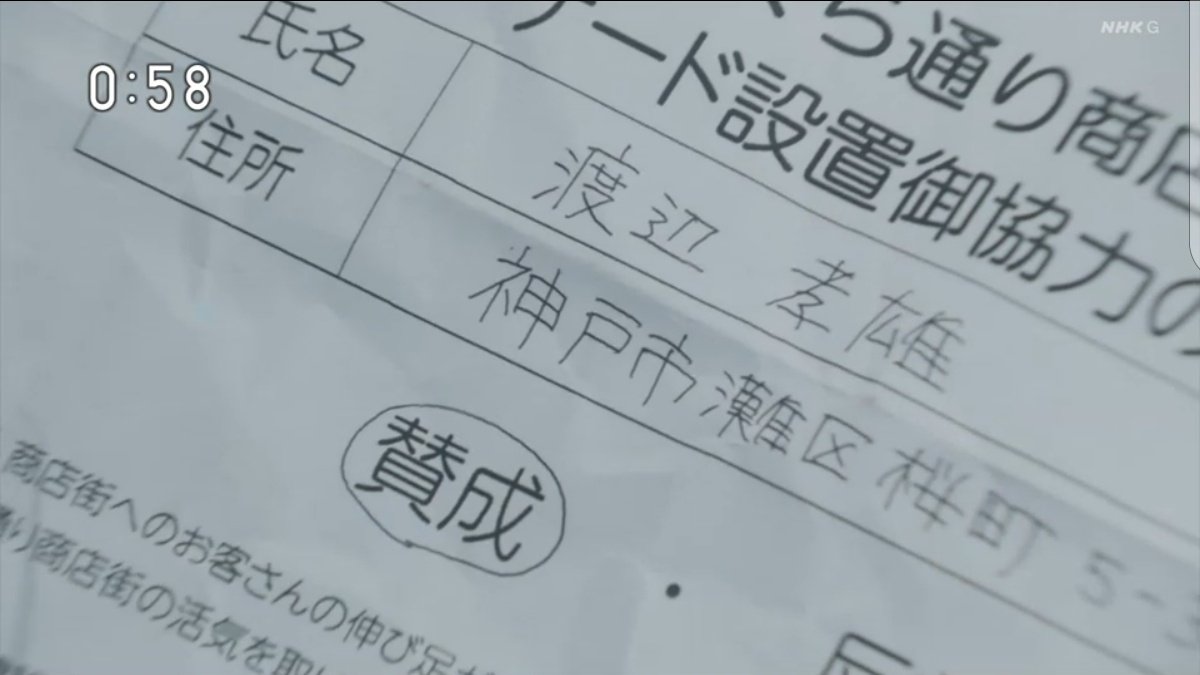 NHK G
0:58
ら通り商店
ード設置御協力の
氏名 渡辺 孝雄
住所 神戸市灘区桜町 5-3
賛成 ・
商店街へのお客さんの伸び足が
通り商店街の活気を取り